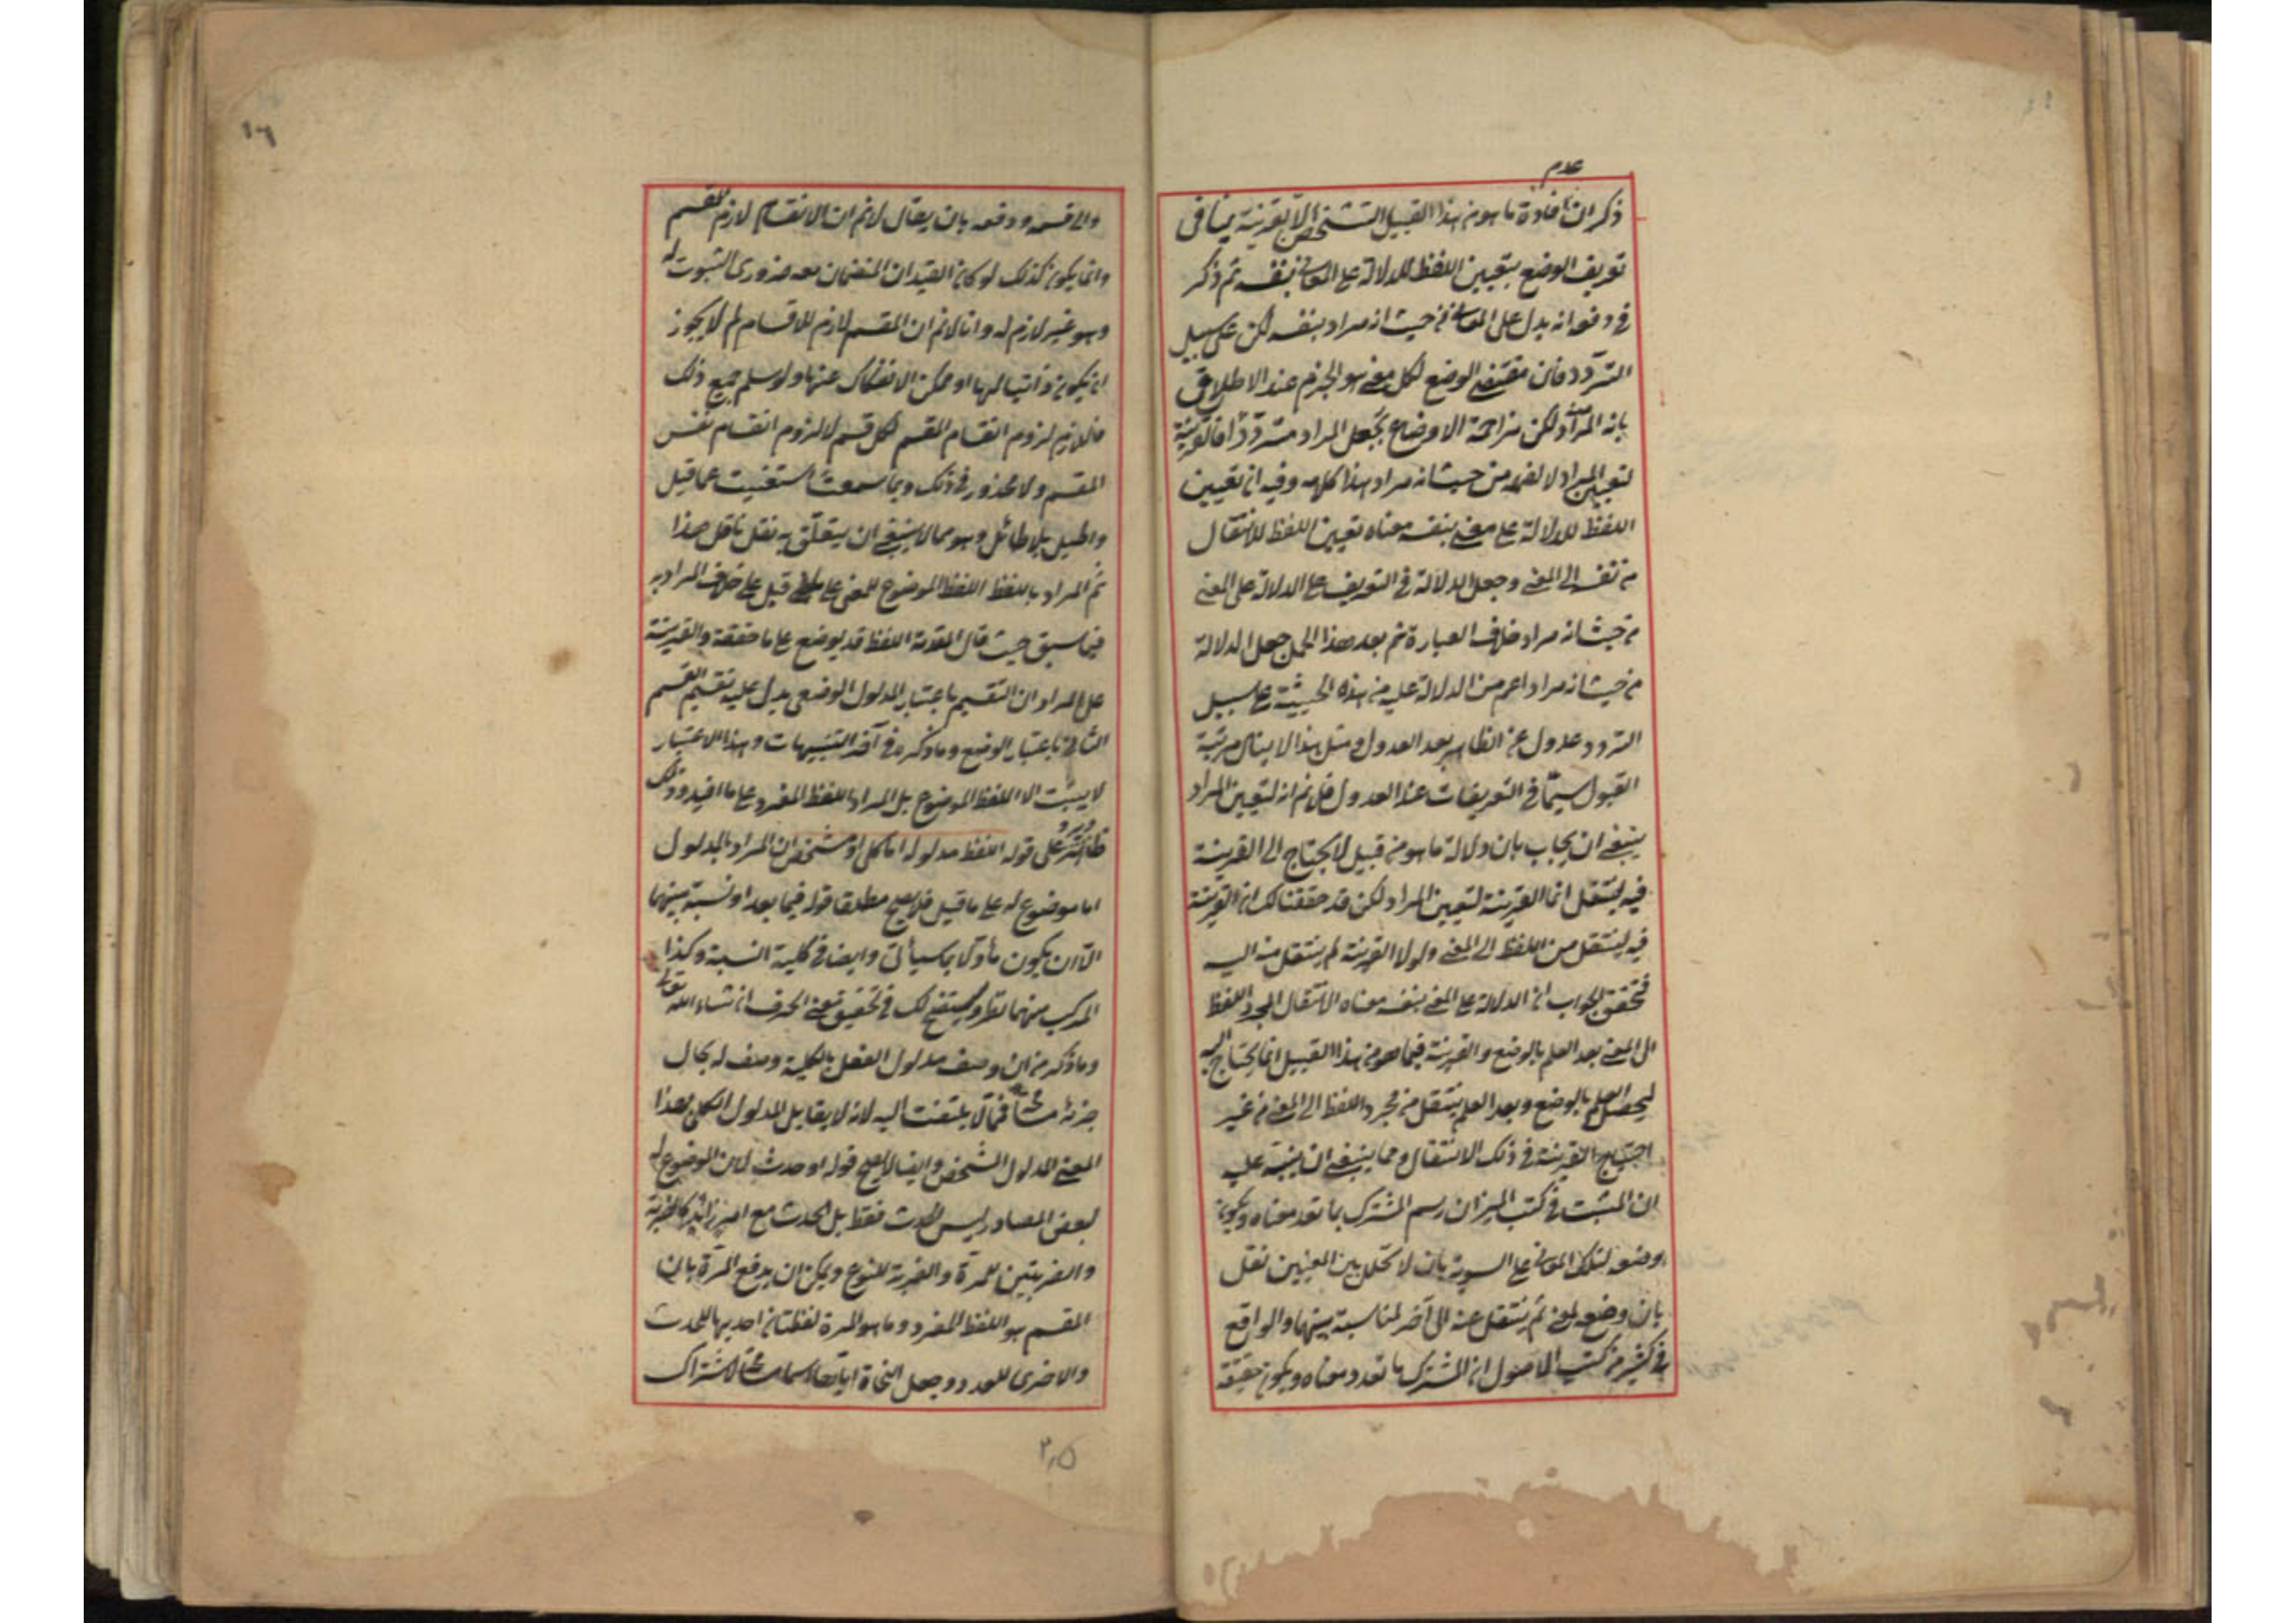 عدم
ذكر ان افادة ما هو من هذا القبيل التشخص الا بقرينة ينافى
تعريف الوضع بتعيين اللفظ للدلالة على المعانى بنفسه ثم ذكر
فى دفعه انه يدل على المعانى من حيث انه مراد بنفسه لكن على سبيل
التردد فان مقتضى الوضع لكل معنى هو الجزم عند الاطلاق
بانه المراد لكن مزاحمة الاوضاع يجعل المراد مترددا فالقرينة
لتعيين المراد لا لفهمه من حيث انه مراد هذا كلامه وفيه ان تعيين
اللفظ للدلالة على معنى بنفسه معناه تعيين اللفظ للانتقال
من نفسه الى المعنى وجعل الدلالة فى التعريف على الدلالة على المعنى
من حيث انه مراد خلاف العبارة ثم بعد هذا الحمل جعل الدلالة
من حيث انه مراد اعم من الدلالة عليه من هذه الحيثية على سبيل
التردد عدول عن الظاهر بعد العدول ومثل هذا لا ينال مرتبة
القبول سيما فى التعريفات عند العدول فلئن تم انه لتعيين المراد
ينبغى ان يجاب بان دلالة ما هو من قبيل لا يحتاج الى القرينة
فيه لينتقل انما القرينة لتعيين المراد لكن قد حققنا لك ان القرينة
فيه لينتقل من اللفظ الى المعنى ولولا القرينة لم ينتقل منه اليه
فتحقق الجواب ان الدلالة على المعنى بنفسه معناه الانتقال بمجرد اللفظ
الى المعنى بعد العلم بالوضع والقرينة فيما هو من هذا القبيل انما يحتاج اليه
ليحصل العلم بالوضع وبعد العلم ينتقل من مجرد اللفظ الى المعنى من غير
احتياج القرينة فى ذلك الانتقال ومما ينبغى ان ينبه عليه
ان المثبت فى كتب الميزان رسم المشترك بما تعدد معناه ويكون
وضعه لتلك المعانى على السوية بان لا تخلل بين المعنيين نقل
بان وضع لمعنى ثم ينتقل عنه الى آخر لمناسبة بينهما والواقع
فى كثير من كتب الاصول ان المشترك ما تعدد معناه ويكون حقيقة
١٦
والى قسمه ودفعه بان يقال لا نم ان الانقسام لازم للقسم
وانما يكون كذلك لو كان القيدان المنضمان معه ضرورى الثبوت له
وهو غير لازم له وانا لا نم ان المقسم لازم للاقسام لم لا يجوز
ان يكون ذاتيا لها او ممكن الانفكاك عنها ولو سلم جميع ذلك
فاللازم لزوم انقسام المقسم لكل قسم لا لزوم انقسام نفس
المقسم ولا محذور فى ذلك وبما سمعت استغنيت عما قيل
واطيل بلا طائل وهو مما لا ينبغى ان يتعلق به نقل ناقل هذا
ثم المراد باللفظ اللفظ الموضوع للمعنى على قيل على خلاف المراد به
فيما سبق حيث قال المقدمة اللفظ قد يوضع على ما حققته والقرينة
على المراد ان التقسيم باعتبار المدلول الوضعى يدل عليه تقسيم القسم
الثانى باعتبار الوضع وما ذكره فى آخر التنبيهات وهذا الاعتبار
لا يثبت الا اللفظ الموضوع بل المراد اللفظ المفرد على ما افيد وذلك
على قوله اللفظ مدلوله اما كلى او مشخص ان المراد بالمدلول
اما موضوع له على ما قيل فلا يصح مطلقا قوله فيما بعد او نسبة بينهما
الا ان يكون مأولا بما سيأتى وايضا فى كلية النسبة وكذا
المركب منهما نظر وسيتضح لك فى تحقيق معنى الحرف ان شاء الله تعالى
وما ذكر من ان وصف مدلول الفعل بالكلية وصف له بحال
جزئه فمما لا يلتفت اليه لانه لا يقابل المدلول الكلى بهذا
المعنى المدلول الشخصى وايضا لا يصح قوله او حدث لان الموضوع له
لبعض المصادر ليس الحدث فقط بل الحدث مع امر زائد كالضربة
والضربتين للمرة والضربة للنوع ويمكن ان يدفع المرة بان
المقسم هو اللفظ المفرد وما هو للمرة لفظتان احديهما للحدث
والاخرى للعدد وجعل النحاة